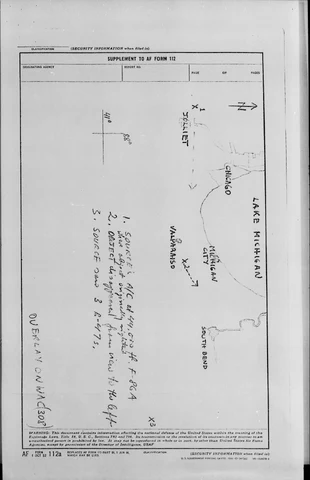 CLASSIFICATION
(SECURITY INFORMATION when filled in)
SUPPLEMENT TO AF FORM 112
ORIGINATING AGENCY
REPORT NO.
PAGE OF PAGES
N
X1
JOLLIET
CHICAGO
LAKE MICHIGAN
MICHIGAN CITY
VALPARAISO
X2
SOUTH BEND
X3
41°
88°
1. SOURCE'S A/C at 44,000 ft. F-86A
when object originally sighted
2. OBJECT disappeared from view to the left
3. SOURCE saw 3 R-47s.
OVERLAY ON WAC (303)
WARNING: This document contains information affecting the national defense of the United States within the meaning of the
Espionage Laws, Title 18, U. S. C., Sections 793 and 794. Its transmission or the revelation of its contents in any manner to an
unauthorized person is prohibited by law. It may not be reproduced in whole or in part, by other than United States Air Force
Agencies, except by permission of the Director of Intelligence, USAF.
AF FORM 112a
(SECURITY INFORMATION when filled in)